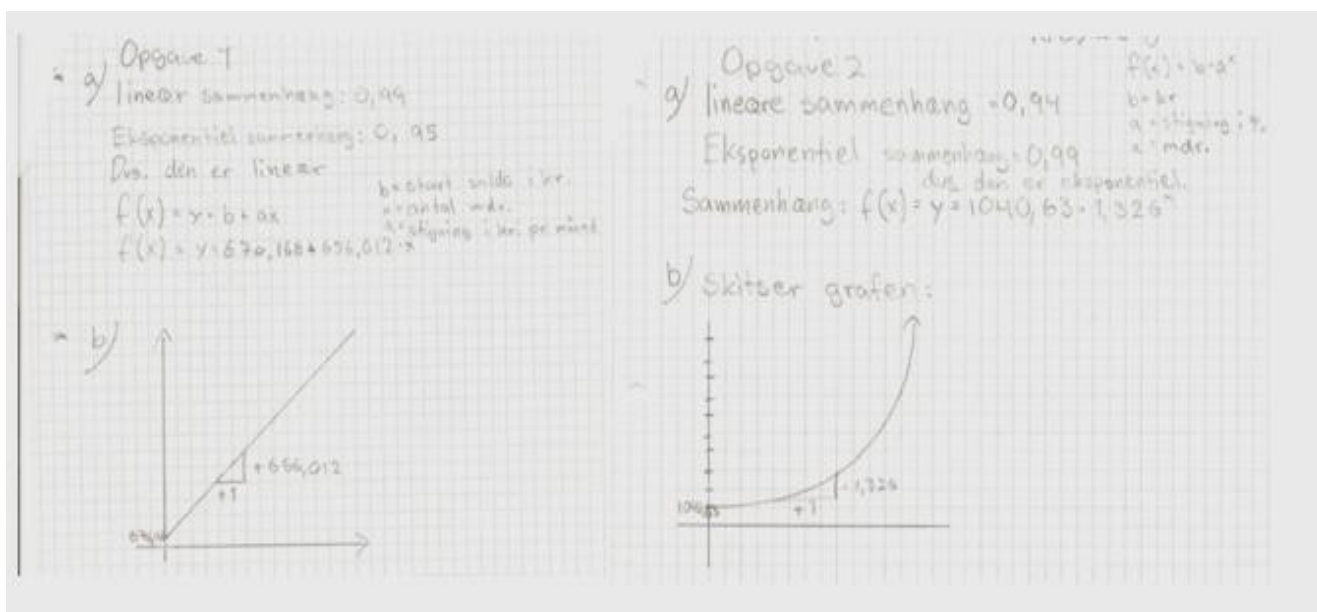 Opgave 1
a) lineær sammenhæng: 0,99
Eksponentiel sammenhæng: 0,95
Dvs. den er lineær
b = start saldo i kr.
x = antal mdr.
a = stigning i kr. pr. måned
f(x) = y = b + ax
f(x) = y = 670,168 + 656,012 · x
b)
+656,012
+1
Opgave 2
f(x) = b · a^x
b = kr
a = stigning i %
x = mdr.
a) lineære sammenhæng = 0,94
Eksponentiel sammenhæng = 0,99
dvs. den er eksponentiel.
Sammenhæng: f(x) = y = 1040,63 · 1,326^x
b) Skitser grafen:
1040,63
· 1,326
+1